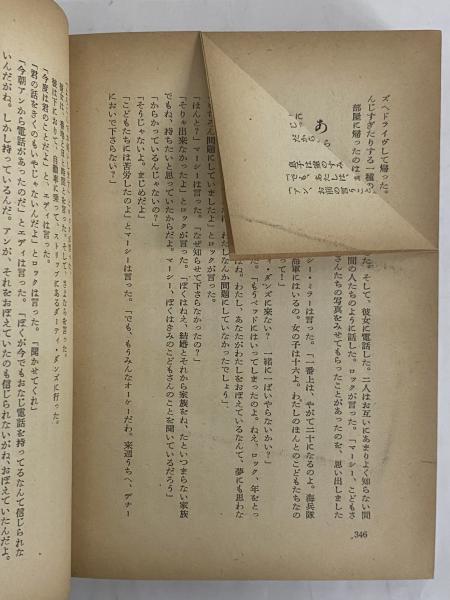 ズへドライヴして帰った。
んじすぎたりする一種の
部屋に帰ったのは
た。そして、彼女に電話した。二人はお互いにあまりよく知らない間
間の人たちのように話した。ロックが言った。「マーシー、こどもさ
さんたちの写真をみせてもらったことがあったのを、思い出しました
シー・ミラーは言った。「一番上は、やがて二十になるのよ。海兵隊
海軍にはいるの。女の子は十六よ。わたしのほんとのこどもたちなの
って！」
ィ・ダンズに来ない？　一緒に一ぱいやらないかい？」
。「もうベッドにはいってしまったのよ。ねえ、ロック、年をとっ
はね。わたし、あなたがわたしをおぼえているなんて、夢にも思わな
わたしなんか問題にしていなかったでしょう」
さん問題にしていましたよ」とロックが言った。
「ほんと？」マーシーは言った。「なぜ知らせて下さらなかったの？」
「そりゃ出来なかったよ」とロックが言った。「ぼくはねえ、結婚とそれから家族をね、たといつまらない家族
でもね、持ちたいと思っていたからだよ。マーシー、ぼくはきみのこどもさんのことを聞いているだろう」
「からかっているんじゃないの？」
「そうじゃないよ。まじめだよ」
「こどもたちには苦労したのよ」とマーシーは言った。「でも、もうみんなオーケーだわ。来週うちへ、デナー
においで下さらない？」
346
あ
息子は彼のすみ
「でも、あたしは
「アン、お前の言うこ
彼は下におりて、自動車に乗って、
「今度は君のことだよ」とエディは言った。
「君の話をきくのもいやじゃないんだよ」とロックは言った。「聞かせてくれ」
「今朝アンから電話があったのだ」とエディは言った。「ぼくが今でもおなじ電話を持ってるなんて信じられな
いんだがね。しかし持っているんだ。アンが、それをおぼえていたのも信じられないがね、おぼえていたんだよ。